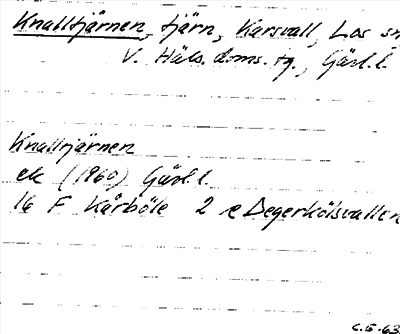 Knalltjärnen, tjärn, Karsvall, Los sn
V. Häls. doms. tg., Gävl. l.
Knalltjärnen
ek (1960) Gävl. l.
16 F Kårböle 2 e Degerkölsvallen
C.G.-63